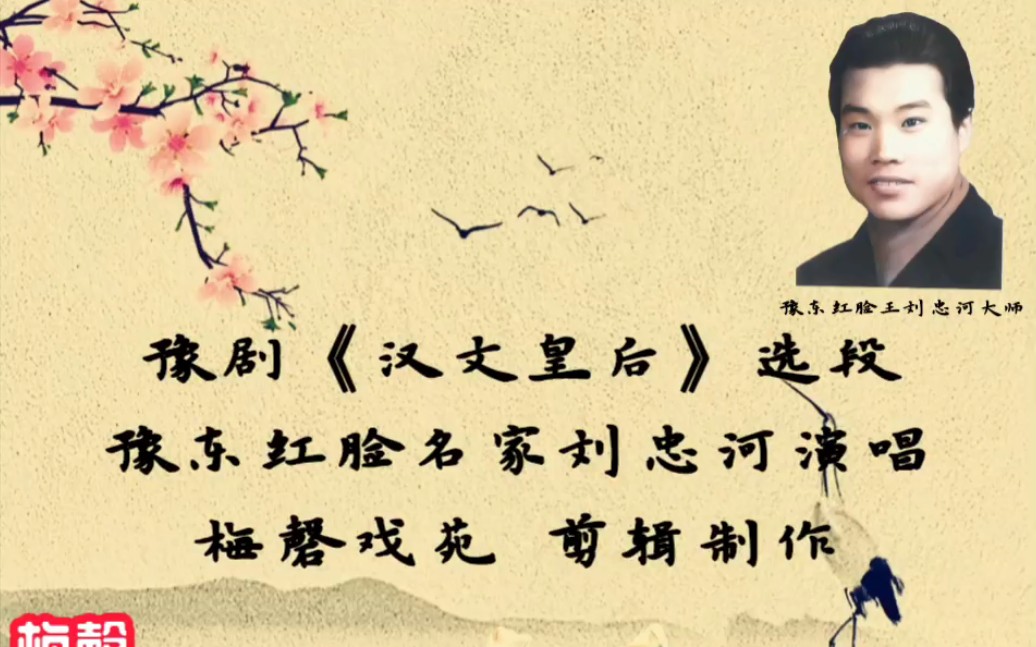 豫东红脸王刘忠河大师
豫剧《汉文皇后》选段
豫东红脸名家刘忠河演唱
梅磬戏苑 剪辑制作